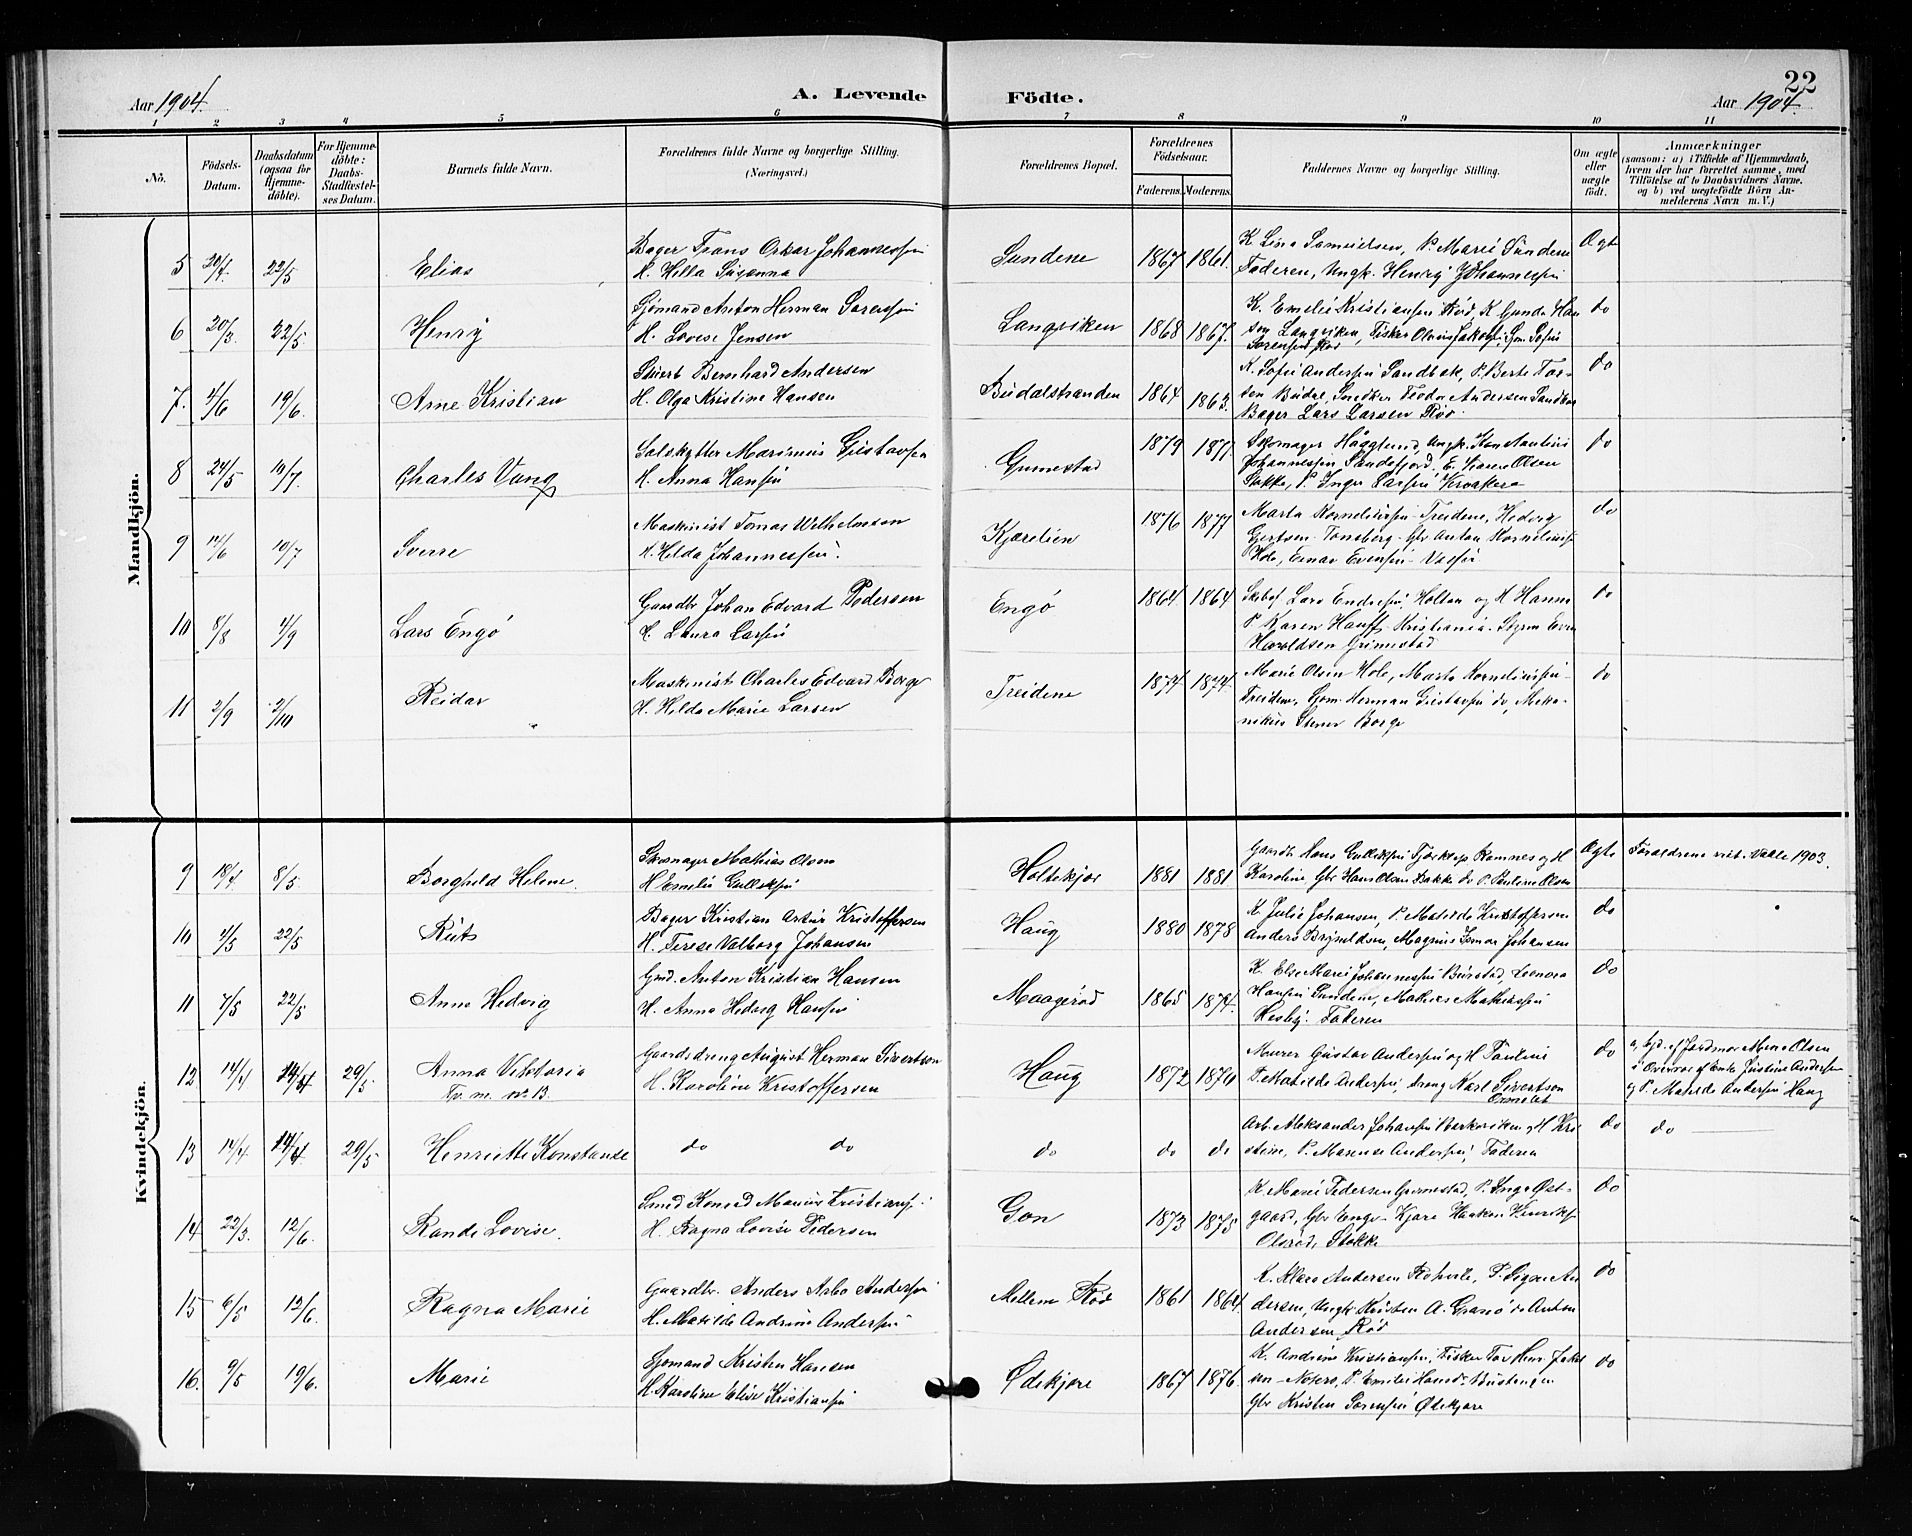 22
Aar 1904.
A. Levende Födte.
Aar 1904.
1 2 3 4 5 6 7 8 9 10 11
No.
Födsels-Datum.
Daabsdatum (ogsaa for Hjemme-döbte).
For Hjemme-döbte: Daabs-Stadfæstel-ses Datum.
Barnets fulde Navn.
Forældrenes fulde Navne og borgerlige Stilling.
(Næringsvei.)
Forældrenes Bopæl.
Forældrenes Födselsaar.
Faderens. Moderens.
Faddernes Navne og borgerlige Stilling.
Om ægte eller uægte födt.
Anmærkninger
(saasom: a) i Tilfælde af Hjemmedaab,
hvem der har forrettet samme, med
Tilföielse af to Daabsvidners Navne.
og b) ved uægtefödte Börn An-
melderens Navn m. V.)
Mandkjön.
5 20/4. 22/5 Elias
Bager Frans Oskar Johannessen
H. Hilla Susanna
Sundene 1867 1861.
K Lina Samuelsen, P. Marie Sundene
Faderen, Ungk. Henry Johannessen
Ægt
6 20/3. 22/5. Henry
Sjömand Anton Herman Sørensen
H. Lovise Jensen
Langviken 1868 1867.
K. Emelie Kristiansen Rød, K Gunda Han
sen Langviken, Fisker Jakobs. Sofus
Sørensen Rød
do
7. 4/6 19/6. Arne Kristian
Bernhard Andersen
H. Olga Kristine Hansen
Budalstranden 1864 1863.
K. Sofie Andersen Sandbæk, P. Berte Tor-
sen Budal, Snedker Teodor Andersen Sandbæk
Bager Lars Larsen Rød.
do
8 24/5 10/7. Charles Vang
Marinius Gustavsen
H. Anna Hansen
Grimestad 1879 1877.
Skomager Hågglund, Ungk.
Johannessen Sandefjord, E. Olsen
Stokke, P. Inger Larsen
do
9 12/6 10/7 Sverre
Maskinist Tomas Wilhelmsen
H. Hilda Johannessen.
Kjærelien 1876 1877
Marta Korneliussen Treidene, Hedvig
Gertsen Tønsberg Gbr Anton Korneliuss.
Hole, Einar Evensen
do
10 8/8 4/9 Lars Engø
Gaardbr Johan Edvard Pedersen
H. Laura Larsen
Engø 1864 1864
Lars Endresen, Holtan og H Hanna
P Karen Hauff Kristiania. Styrm Even
Haraldsen Grimestad
do
11 2/9 2/10 Reidar
Maskinist Charles Edvard Borge
H. Hilda Marie Larsen
Treidene 1874 1874.
Marie Olsen Hole, Marta Korneliussen
Treidene, Sjøm Herman Gustavsen do, Meka-
nikus Borge
do
Kvindekjön.
9 18/4. 8/5. Borghild Helene.
Skomager Mathias Olsen
H Emelie Gulliksen
Holtekjær 1881 1881
Gaardbr Hans Gulliksen Ramnes og H
Karoline, Gbr Hans Olsen Bakke do P. Pauline Olsen
Ægte Forældrene viet i Vaale 1903.
10 4/5 22/5 Rut
Bager Kristian Artur Kristoffersen
H. Terese Valborg Johansen
Haug 1880 1878
K Julie Johansen, P. Matilde Kristoffersen
Anders Brynildsen, Magnus Johansen
do
11 7/5 22/5. Anna Hedvig
Gmd. Anton Kristian Hansen
H. Anna Hedvig Hansen
Maagerød 1865 1874.
K. Else Marie Johannessen Leonora
Hansen Sundene, Mathias Mathiassen
Hesby. Faderen
do
12. 14/4 14/4 29/5. Anna Viktoria
Tv. m. No 13.
Gaardsdreng August Herman Sivertsen
H. Karoline Kristoffersen
Haug 1872 1876
Murer Gustav Andersen og H Pauline
P. Matilde Andersen, dreng Karl Sivertsen
Ormelet
do
a, hjd. af Jordmor Mina Olsen
i Overvær af Enke Justine Andersen
og P. Matilde Andersen Haug
13 14/4 14/4 29/5 Henriette Konstanse
do do do do do
Arb. Aleksander Johansen og H Kri
stine, P. Marense Andersen, Faderen
do do
14. 22/3. 12/6. Randi Lovise.
Smed Konrad Marius Kristians.
H. Ragna Lovise Pedersen
Gon 1873 1875
K. Marie Pedersen Grimestad, P. Inga Øst-
gaard, Gbr Kjære Haaken Henriks.
Olsrød, Stokke
do
15 6/5 12/6. Ragna Marie
Gaardbr. Anders Arbo Andersen
H. Matilde Andrine Andersen
Mellem Rød 1861 1864.
K. Klara Andersen, P. Signe An
dersen, Ungk. Kristen A. Granø do Anton
Andersen Rød
do
16. 9/5 19/6. Marie
Sjømand Kristen Hansen
H. Karoline Elise Kristiansen
Ødekjære 1867 1876.
K. Andrine Kristiansen, Fisker Tor Hen. Jakob
sen Nøterø, P. Emilie Hans.
Gbr Kristen Sørensen Ødekjære
do